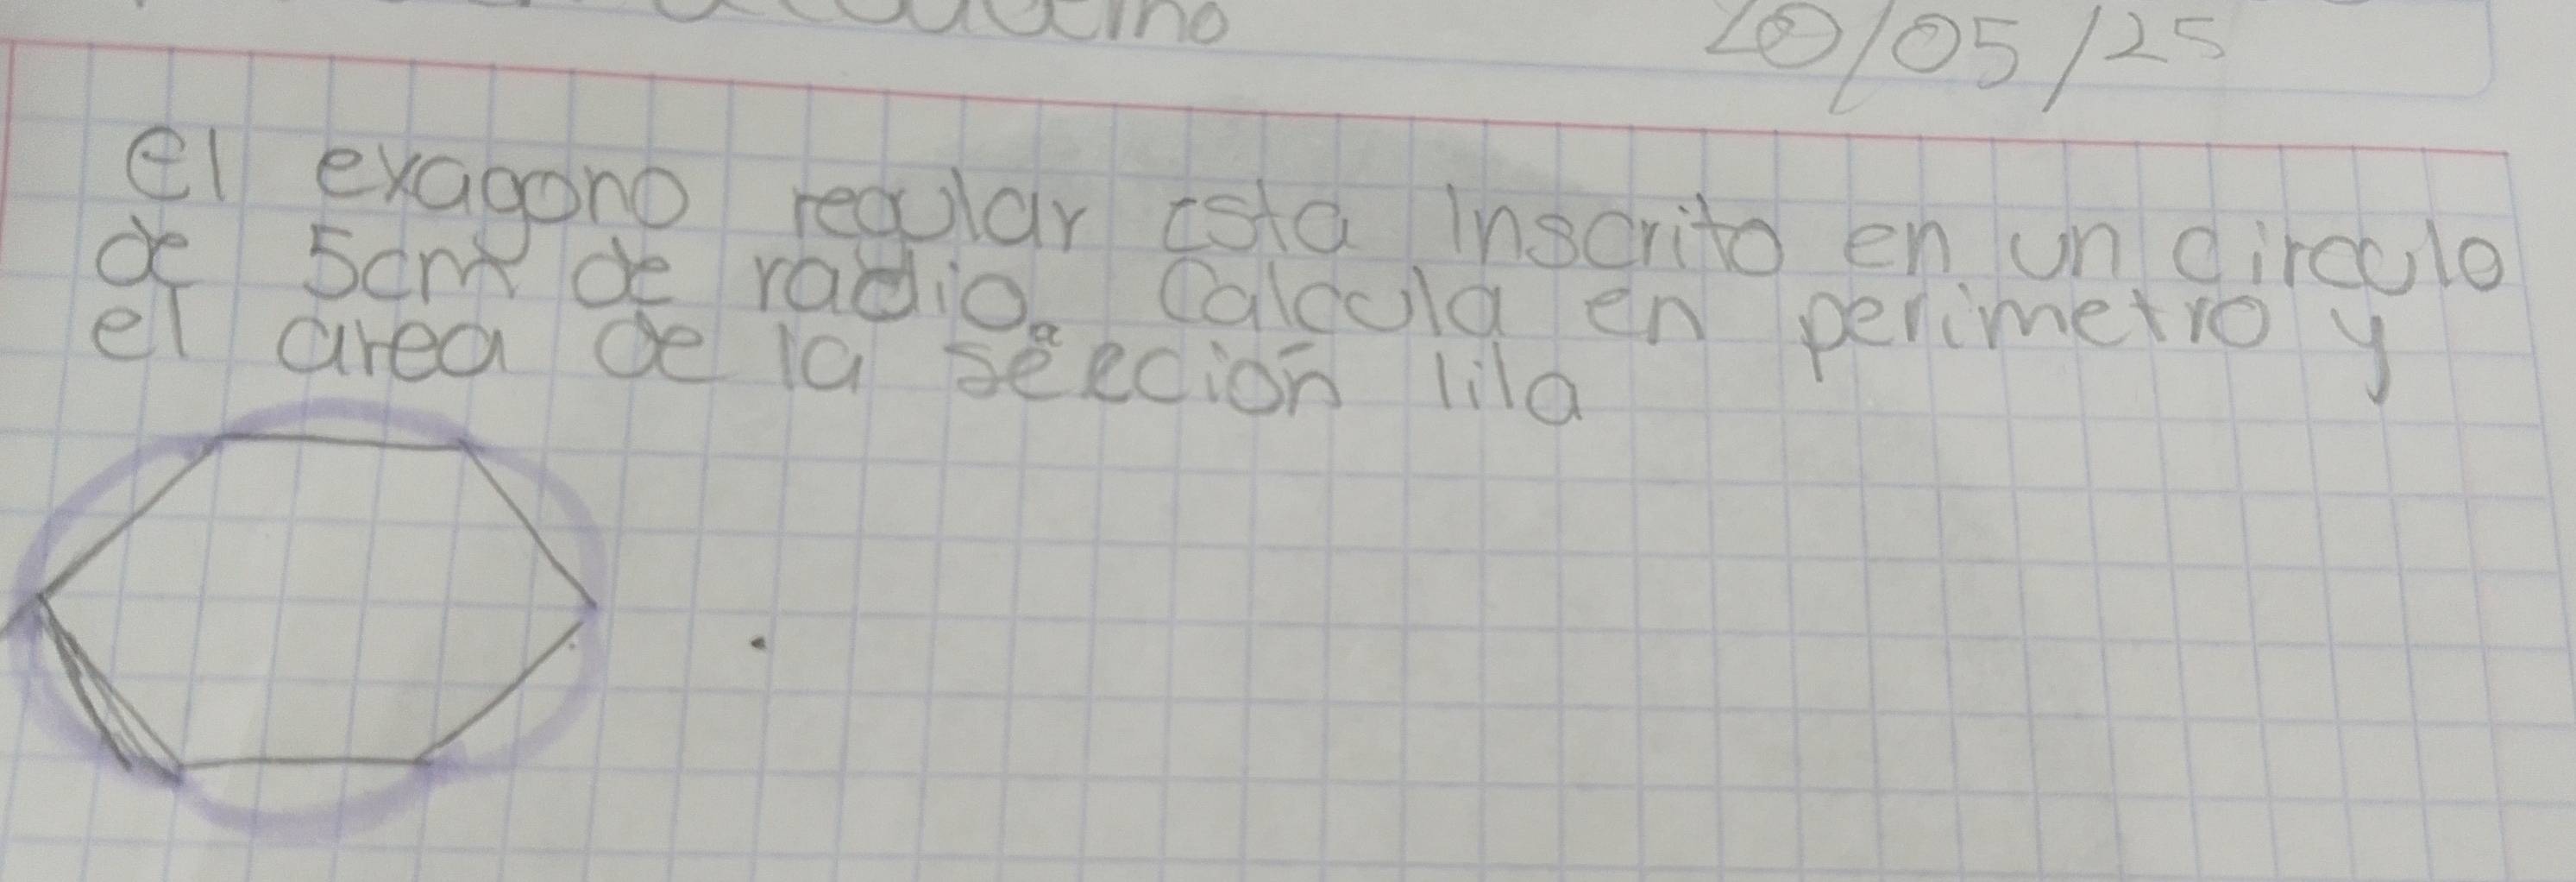 20/05/25
el exagono regular esta inscrito en un circulo
de 5cm de radio. Calcula en perimetro y
el area de la seección lila